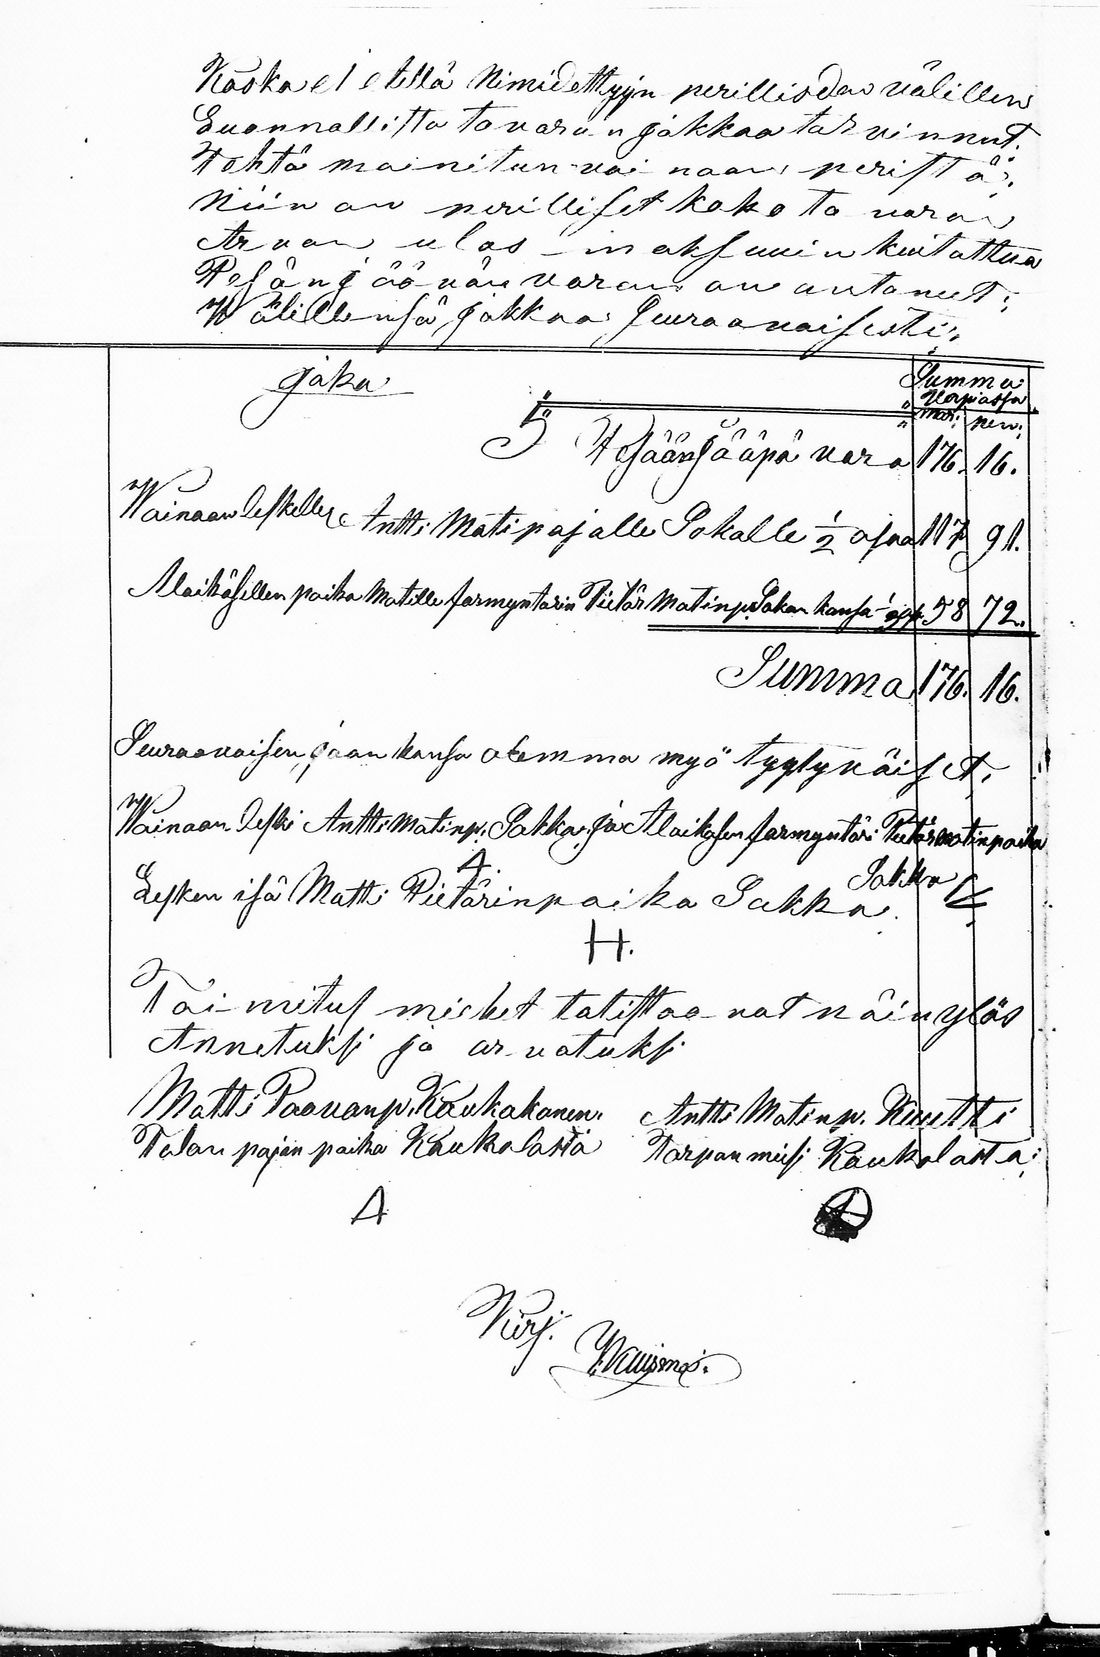 Koska el etellä Nimidettyjn perillisden välillen
Luonnallista tavaran jakkaa tarvinnut.
Tehtä mainitun vainaan peristä;
Niin on perilliset koko tavaran
Arvon ulos-maksuin kuitattua
Pesän jäävän varan on antanut;
Wälillensä jakkaa seuraavaisesti;
Jako
Summa
Verpassa
mar: pen:
5 Pesään jääpä vara 176. 16.
Wainaan leskelle Antti Matipajalle Sokalle ½ osaa 117 91.
Alaikäsellen paika Matille farmyntärin Pietär Matinp. Sakan kansa 58 72.
Summa 176. 16.
Seuraavaisen jaan kansa olemma myö tyytyväiset;
Wainaan Leski Antti Matinp. Sakka ja Alaikäsen farmyntäri Pietär Matinpoika
Sakka
Lesken isä Matti Pietärinpaika Sakka.
H.
Toimitus miehet tatistaavat näin ylös
Annetuksi ja arvatuksi
Matti Paavanp. Kaukakanen. Antti Matinp. Kuutti
Talan pajan paika Kaukolasta Tarpan miesi Kaukolasta;
A
Kirj.